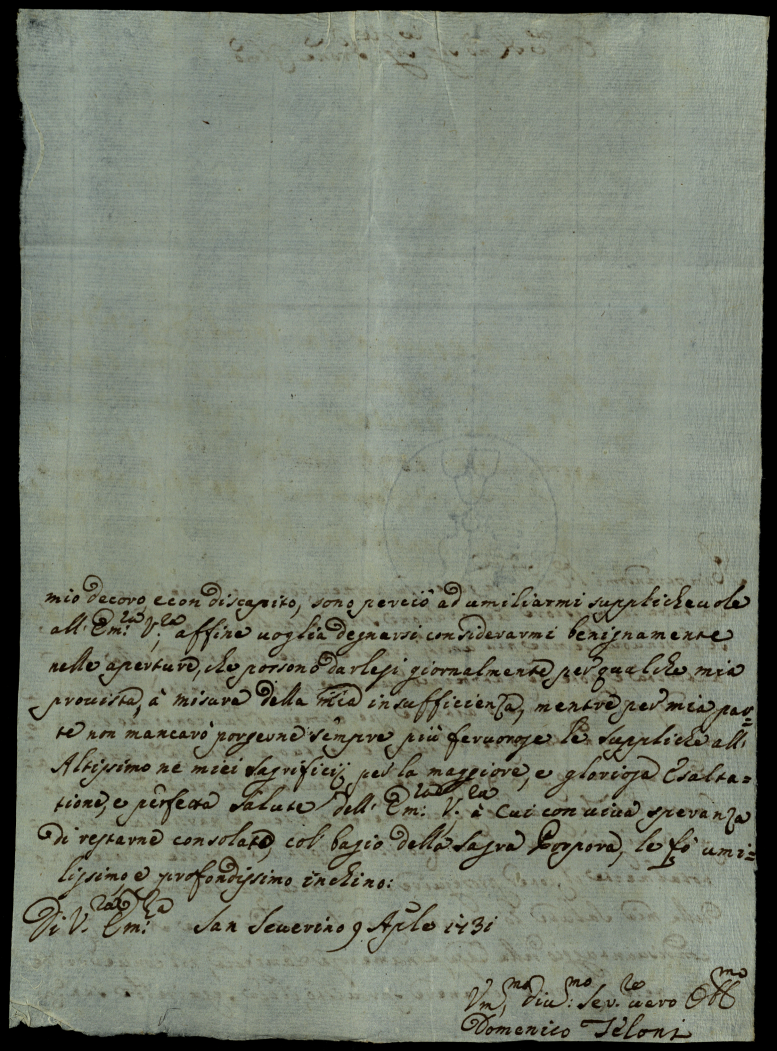 mio decoro, e con discapito, sono perciò ad umiliarmi supplicheuole
all' Em.za V.ra affine uoglia degnarsi considerarmi benignamente
nelle aperture, che possono darlesi giornalmente per qualche mia
prouista, à misura della mia insufficienza, mentre per mia par=
te non mancarò porgerne sempre più feruorose le suppliche all'
Altissimo ne miei sagrificij per la maggiore, e gloriosa Esalta=
tione, e perfetta salute dell' Em.za V.ra à cui con uiua speranza
di restarne consolato, col bagio della Sagra Porpora, le fò umi=
lissimo, e profondissimo inchino:
Di V.ra Em.za San Seuerino 9 Aple 1731
Vm.mo diu.mo Ser.re uero Obb.mo
Domenico Teloni